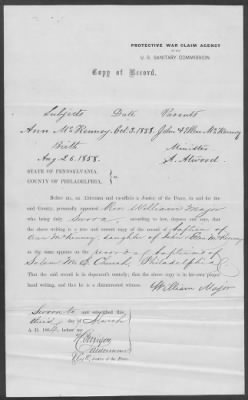 PROTECTIVE WAR CLAIM AGENCY
OF THE
U. S. SANITARY COMMISSION
Copy of Record.
Subjects Date Parents
Ann McKenney Oct. 3. 1858. John & Ellen McKenney
Birth Minister
Aug 26. 1858. A. Atwood
STATE OF PENNSYLVANIA,
COUNTY OF PHILADELPHIA.
Before me, an Alderman and ex-officio a Justice of the Peace, in and for the
said County, personally appeared Rev William Major
who being duly sworn, according to law, deposes and says, that
the above writing is a true and correct copy of the record of baptism of
Ann McKenney, daughter of John & Ellen McKenney
as the same appears on the records of baptisms of
Salem M. E. Church, Philadelphia
That the said record is in deponent's custody, that the above copy is in his own proper
hand writing, and that he is a disinterested witness.
William Major
Sworn to and subscribed this
third day of March
A. D. 186 before me
Alderman
Justice of the Peace.